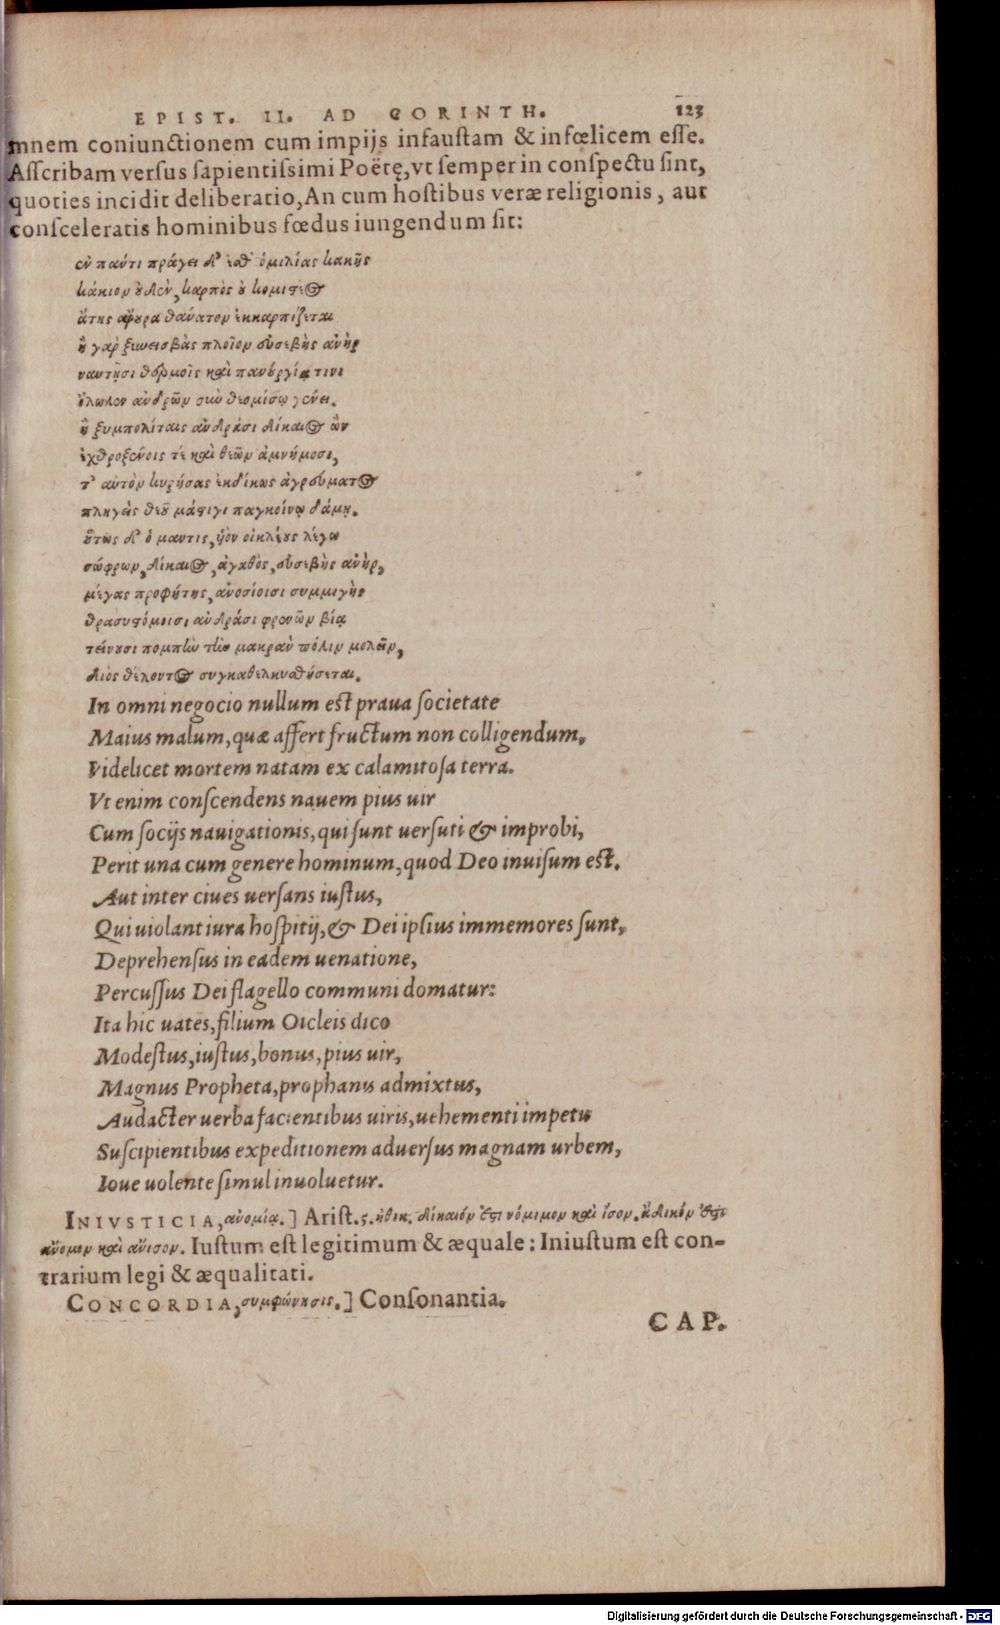 EPIST. II. AD CORINTH. 123
mnem coniunctionem cum impijs infaustam & infœlicem esse.
Asscribam versus sapientissimi Poëtę, vt semper in conspectu sint,
quoties incidit deliberatio, An cum hostibus veræ religionis, aut
consceleratis hominibus fœdus iungendum sit:
ἐν παντὶ πράγει δ' ἔσθ' ὁμιλίας κακῆς
κάκιον οὐδέν, καρπὸς οὐ κομιστέος
ἄτης ἄρουρα θάνατον ἐκκαρπίζεται
ἢ γὰρ ξυνεισβὰς πλοῖον εὐσεβὴς ἀνὴρ
ναύτῃσι θερμοῖς καὶ πανουργίᾳ τινι
ὄλωλεν ἀνδρῶν σὺν θεομίσῳ γένει.
ἢ ξυμπολίταις ἀνδράσι δίκαιος ὢν
ἐχθροξένοις τε καὶ θεῶν ἀμνήμοσι,
τ' αὐτὸν κυρήσας ἐκδίκως ἀγρεύματος
πληγεὶς θεοῦ μάστιγι παγκοίνῳ δάμη.
οὕτως δ' ὁ μάντις, υἱὸν οἰκλέους λέγω
σώφρων, δίκαιος, ἀγαθὸς, εὐσεβὴς ἀνὴρ,
μέγας προφήτης, ἀνοσίοισι συμμιγεὶς
θρασυστόμοισι ἀνδράσι φρενῶν βίᾳ
τείνουσι πομπὴν τὴν μακρὰν πόλιν μολεῖν,
Διὸς θέλοντος συγκαθελκυσθήσεται.
In omni negocio nullum est praua societate
Maius malum, quæ affert fructum non colligendum,
Videlicet mortem natam ex calamitosa terra.
Vt enim conscendens nauem pius uir
Cum socijs nauigationis, qui sunt uersuti & improbi,
Perit una cum genere hominum, quod Deo inuisum est.
Aut inter ciues uersans iustus,
Qui uiolant iura hospitij, & Dei ipsius immemores sunt,
Deprehensus in eadem uenatione,
Percussus Dei flagello communi domatur:
Ita hic uates, filium Oicleis dico
Modestus, iustus, bonus, pius uir,
Magnus Propheta, prophanis admixtus,
Audacter uerba facientibus uiris, uehementi impetu
Suscipientibus expeditionem aduersus magnam urbem,
Ioue uolente simul inuoluetur.
INIVSTICIA, ἀνομίᾳ.] Arist. 5. ἠθικ. δίκαιόν ἐστι νόμιμον καὶ ἴσον. ἄδικόν ἐστι
ἄνομον καὶ ἄνισον. Iustum est legitimum & æquale: Iniustum est con-
trarium legi & æqualitati.
CONCORDIA, συμφώνησις.] Consonantia.
CAP.
Digitalisierung gefördert durch die Deutsche Forschungsgemeinschaft - DFG